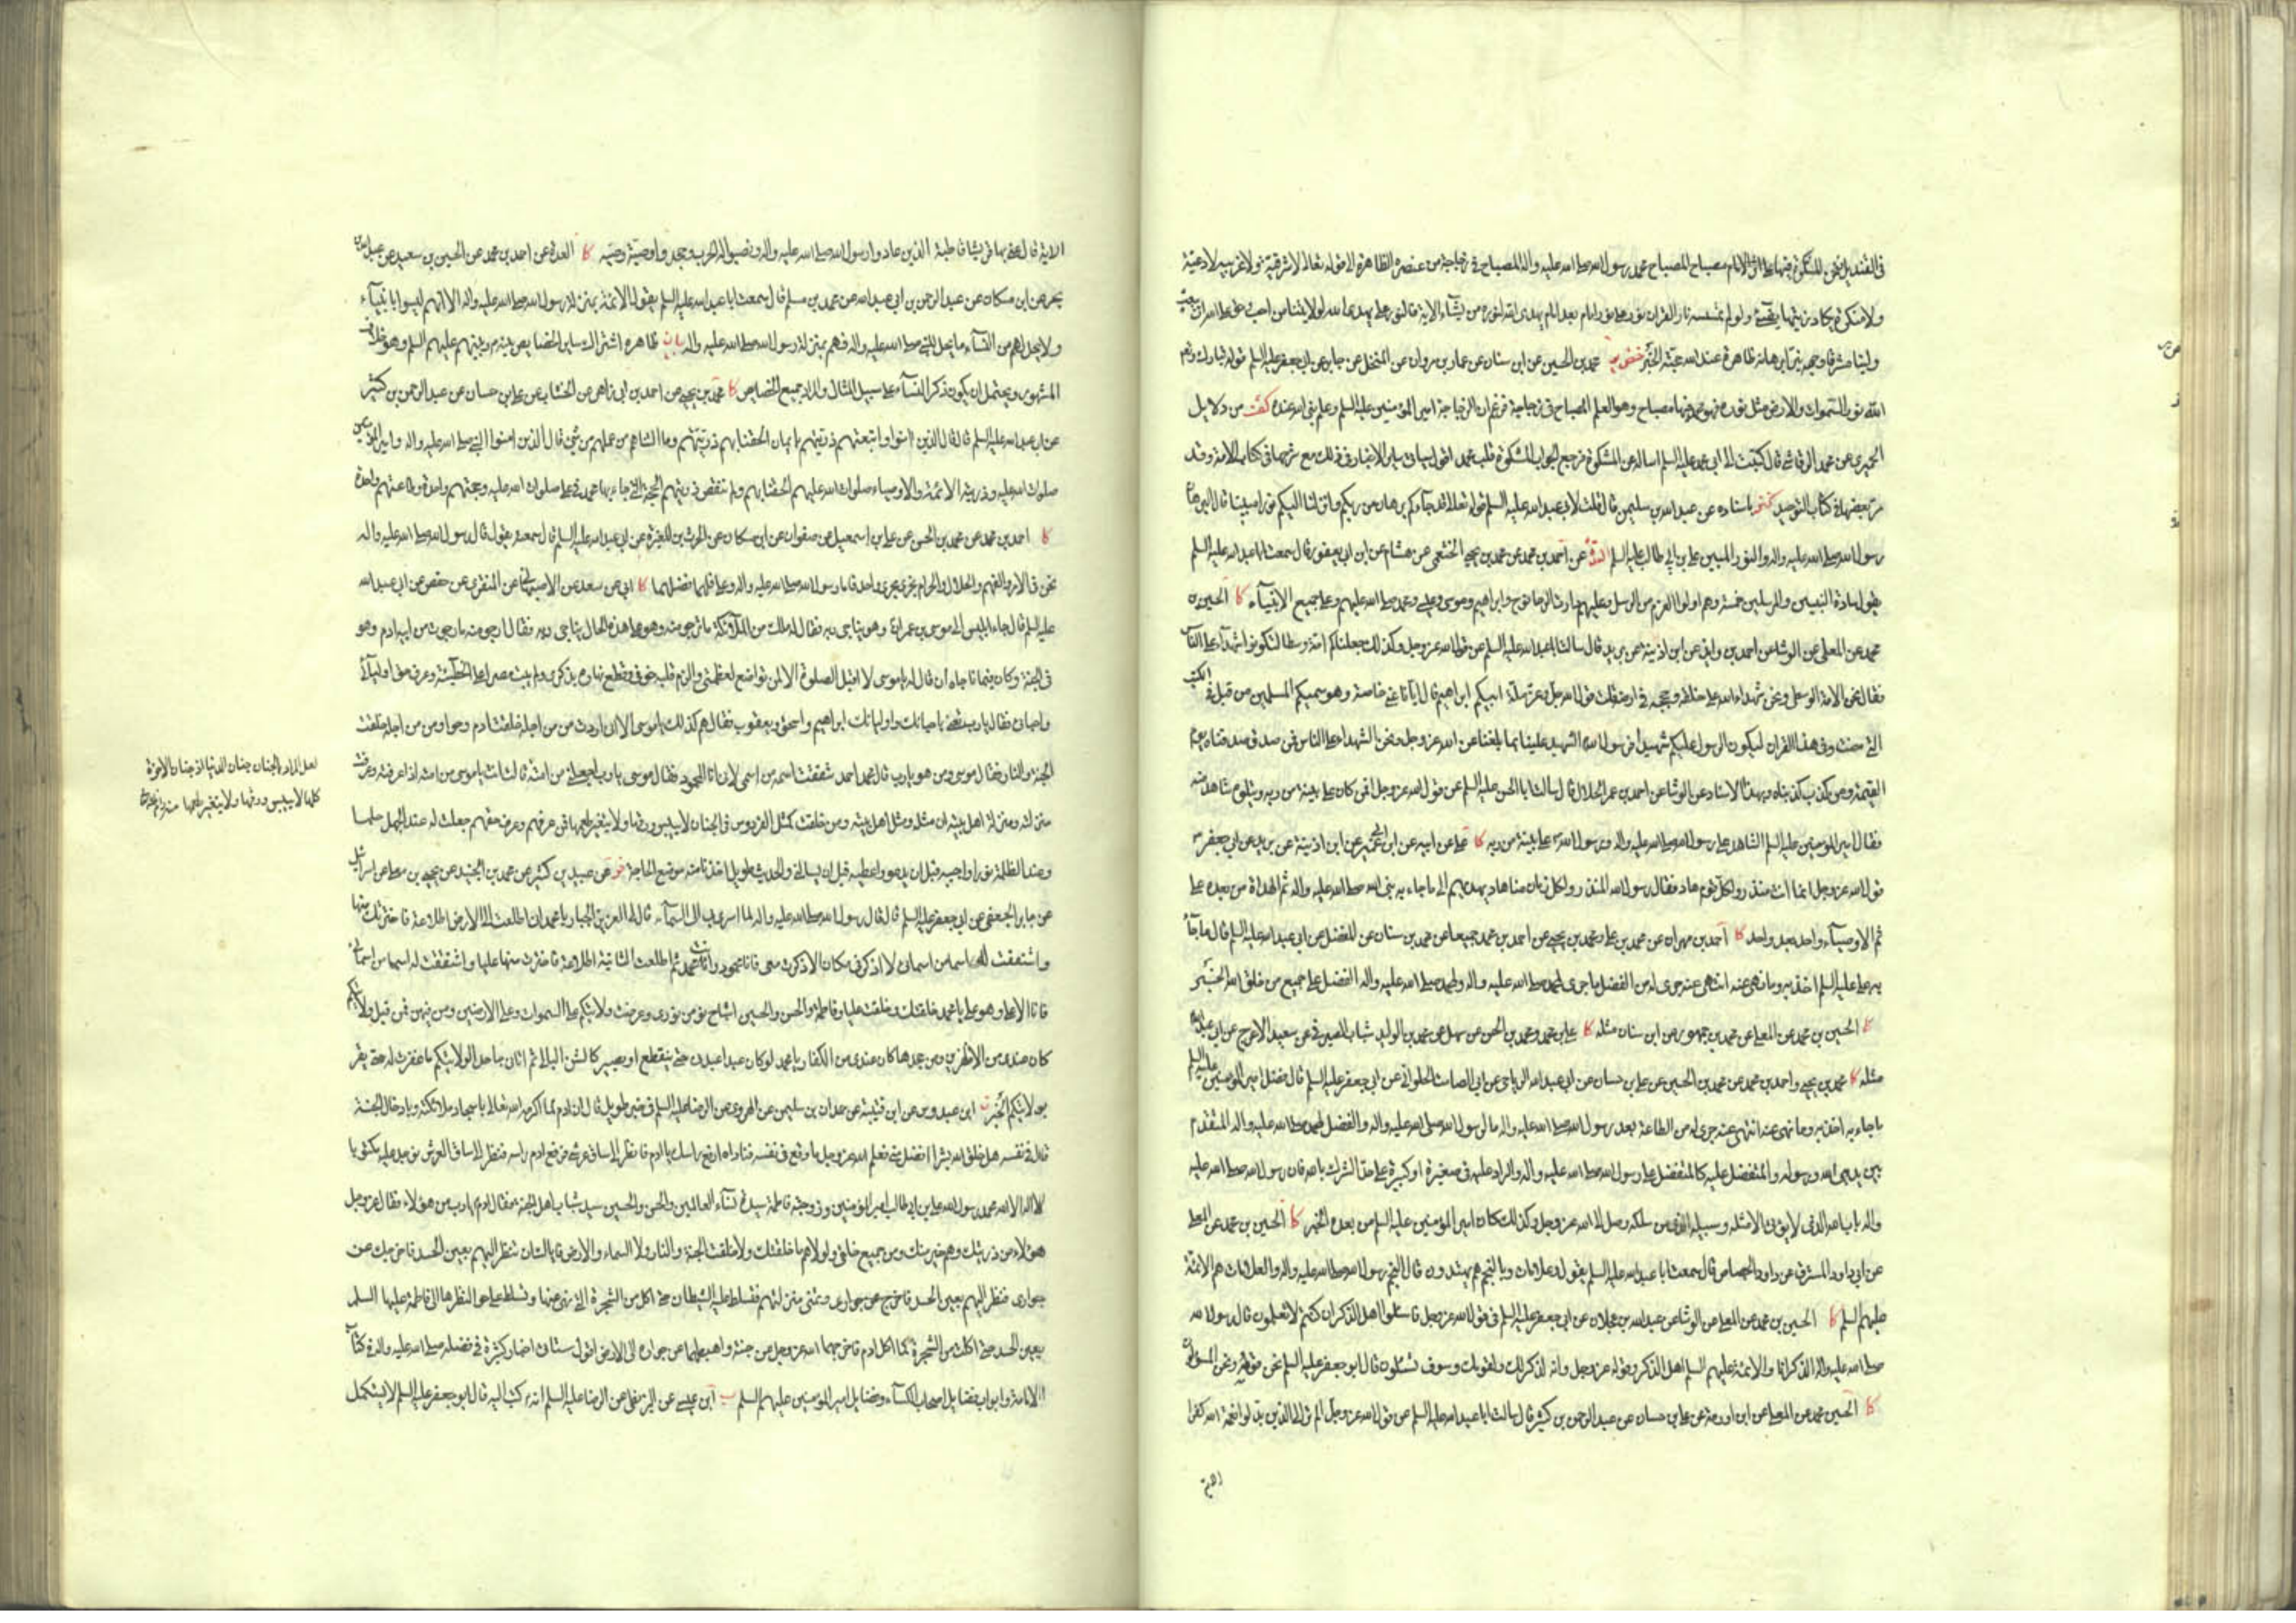 في القنديل فنحن المشكوة فيها مصباح المصباح محمد رسول الله صلى الله عليه واله المصباح في زجاجة من عنصره الطاهرة الى قوله تعالى لا شرقية ولا غربية لا دعية
ولا منكرة يكاد زيتها يضيء ولو لم تمسسه نار القران نور على نور امام بعد امام يهدى الله لنوره من يشاء الاية فالنور على يهدى الله لولايتنا من احب
محمد بن الحسين عن ابن سنان عن عمار بن مروان عن المنخل عن جابر عن ابي جعفر عليه السلم قوله تبارك وتعالى
الله نور السموات والارض مثل نوره فيها مصباح وهو العلم المصباح في زجاجة فزعم ان الزجاجة امير المؤمنين عليه السلم وعلم نبي الله عنده كشف من دلايل
الحميرى عن محمد الرقاشي قال كتبت الى ابي محمد عليه السلم اساله عن المشكوة فرجع الجواب المشكوة قلب محمد
باسناده عن عبد الله بن سليمن قال قلت لابي عبد الله عليه السلم قوله تعالى قد جاءكم برهان من ربكم وانزلنا اليكم نورا مبينا قال البرهان
رسول الله صلى الله عليه واله والنور المبين علي بن ابي طالب عليه السلم العدة عن احمد بن محمد عن محمد بن يحيى الخثعمي عن هشام عن ابن ابي يعفور قال سمعت ابا عبد الله عليه السلم
يقول سادة النبيين والمرسلين خمسة وهم اولوا العزم من الرسل وعليهم دارت الرحا نوح وابراهيم وموسى وعيسى ومحمد صلى الله عليهم وعلى جميع الانبياء كا الحسين بن
محمد عن المعلى عن الوشا عن احمد بن عايذ عن ابن اذينة عن بريد قال سالت ابا عبد الله عليه السلم عن قول الله عز وجل وكذلك جعلناكم امة وسطا لتكونوا شهداء على الناس
فقال نحن الامة الوسطى ونحن شهداء الله على خلقه وحججه في ارضه قلت قول الله عز وجل ملة ابيكم ابراهيم قال ايانا عنى خاصة وهو سميكم المسلمين من قبل في الكتب
التي مضت وفي هذا القران ليكون الرسول عليكم شهيدا فرسول الله الشهيد علينا بما بلغنا عن الله عز وجل ونحن الشهداء على الناس فمن صدق صدقناه يوم
القيمة ومن كذب كذبناه وبهذا الاسناد عن الوشا عن احمد بن عمر الحلال قال سالت ابا الحسن عليه السلم عن قول الله عز وجل افمن كان على بينة من ربه ويتلوه شاهد منه
فقال امير المؤمنين عليه السلم الشاهد على رسول الله صلى الله عليه واله ورسول الله على بينة من ربه كا علي عن ابيه عن ابن ابي عمير عن ابن اذينة عن بريد عن ابي جعفر
قول الله عز وجل انما انت منذر ولكل قوم هاد فقال رسول الله المنذر ولكل زمان منا هاد يهديهم الى ما جاء به نبي الله صلى الله عليه واله ثم الهداة من بعده علي
ثم الاوصياء واحد بعد واحد كا احمد بن مهران عن محمد بن علي ومحمد بن يحيى عن احمد بن محمد جميعا عن محمد بن سنان عن المفضل عن ابي عبد الله عليه السلم قال ما جاء
به علي عليه السلم اخذ به وما نهى عنه انتهى عنه جرى له من الفضل ما جرى لمحمد صلى الله عليه واله ولمحمد صلى الله عليه واله الفضل على جميع من خلق الله الخبر
كا الحسين بن محمد عن المعلى عن محمد بن جمهور عن ابن سنان مثله كا علي بن محمد ومحمد بن الحسن عن سهل عن محمد بن الوليد شباب الصيرفي عن سعيد الاعرج عن ابي عبد الله
مثله كا محمد بن يحيى واحمد بن محمد عن محمد بن الحسين عن علي بن حسان عن ابي عبد الله الرياحي عن ابي الصامت الحلواني عن ابي جعفر عليه السلم قال فضل امير المؤمنين عليه السلم
ما جاء به اخذ به وما نهى عنه انتهى عنه جرى له من الطاعة بعد رسول الله صلى الله عليه واله ما لرسول الله صلى الله عليه واله والفضل لمحمد صلى الله عليه واله المتقدم
بين يديه كالمتقدم بين يدي الله ورسوله والمتفضل عليه كالمتفضل على رسول الله صلى الله عليه واله والراد عليه في صغيرة او كبيرة على حد الشرك بالله فان رسول الله صلى الله عليه
واله باب الله الذي لا يؤتى الا منه وسبيله الذي من سلكه وصل الى الله عز وجل وكذلك كان امير المؤمنين عليه السلم من بعده الخبر كا الحسين بن محمد عن المعلى
عن ابي داود المسترق عن داود الجصاص قال سمعت ابا عبد الله عليه السلم يقول وعلامات وبالنجم هم يهتدون قال النجم رسول الله صلى الله عليه واله والعلامات هم الائمة
عليهم السلم كا الحسين بن محمد عن المعلى عن الوشا عن عبد الله بن عجلان عن ابي جعفر عليه السلم في قول الله عز وجل فاسئلوا اهل الذكر ان كنتم لا تعلمون قال رسول الله
صلى الله عليه واله الذكر انا والائمة عليهم السلم اهل الذكر وقوله عز وجل وانه لذكر لك ولقومك وسوف تسئلون قال ابو جعفر عليه السلم نحن قومه ونحن المسؤلون
كا الحسين بن محمد عن المعلى عن ابن اورمة عن علي بن حسان عن عبد الرحمن بن كثير قال سالت ابا عبد الله عليه السلم عن قول الله عز وجل الم تر الى الذين بدلوا نعمة الله كفرا
الاية
الاية قال عنى بها قريشا قاطبة الذين عادوا رسول الله صلى الله عليه واله ونصبوا له الحرب وجحدوا وصية وصيه كا العدة عن احمد بن محمد عن الحسين بن سعيد عن عبد الله بن
بحر عن ابن مسكان عن عبد الرحمن بن ابي عبد الله عن محمد بن مسلم قال سمعت ابا عبد الله عليه السلم يقول الائمة بمنزلة رسول الله صلى الله عليه واله الا انهم ليسوا بانبياء
ولا يحل لهم من النساء ما يحل للنبي صلى الله عليه واله فهم بمنزلة رسول الله صلى الله عليه واله بيان ظاهره اشتراك ساير الخصايص بينه وبينهم عليهم السلم وهو خلاف
المشهور ويحتمل ان يكون ذكر النساء على سبيل المثال والمراد جميع الخصايص كا محمد بن يحيى عن احمد بن ابي زاهر عن الخشاب عن علي بن حسان عن عبد الرحمن بن كثير
عن ابي عبد الله عليه السلم قال قال الذين امنوا واتبعتهم ذريتهم بايمان الحقنا بهم ذريتهم وما التناهم من عملهم من شئ قال الذين امنوا النبي صلى الله عليه واله وامير المؤمنين
صلوات الله عليه وذريته الائمة والاوصياء صلوات الله عليهم الحقنا بهم ولم ننقص ذريتهم الحجة التي جاء بها محمد في علي صلوات الله عليه وحجتهم واحدة وطاعتهم واحدة
كا احمد بن محمد عن محمد بن الحسن عن علي بن اسمعيل عن صفوان عن ابن مسكان عن الحرث بن المغيرة عن ابي عبد الله عليه السلم قال سمعته يقول قال رسول الله صلى الله عليه واله
نحن في الامر والفهم والحلال والحرام نجرى مجرى واحد فاما رسول الله صلى الله عليه واله وعلي فلهما فضلهما ابي عن سعد عن الاصبهاني عن المنقرى عن حفص عن ابي عبد الله
عليه السلم قال جاء ابليس الى موسى بن عمران وهو يناجى ربه فقال له ملك من الملائكة ما ترجو منه وهو على هذه الحال يناجى ربه فقال ارجو منه ما رجوت من ابيه ادم وهو
في الجنة وكان فيما ناجاه ان قال له يا موسى لا اقبل الصلوة الا لمن تواضع لعظمتي والزم قلبه خوفي وقطع نهاره بذكرى ولم يبت مصرا على الخطيئة وعرف حق اوليائي
واحبائي فقال يا رب تعنى باحبائك واوليائك ابراهيم واسحق ويعقوب فقال هم كذلك يا موسى الا اني اردت من من اجله خلقت ادم وحوا ومن من اجله خلقت
الجنة والنار فقال موسى ومن هو يا رب قال محمد احمد شققت اسمه من اسمى لاني انا المحمود فقال موسى يا رب اجعلني من امته قال انت يا موسى من امته اذا عرفته وعرفت
منزلته ومنزلة اهل بيته ان مثله ومثل اهل بيته ومن خلقت كمثل الفردوس في الجنان لا ييبس ورقها ولا يتغير طعمها فمن عرفهم وعرف حقهم جعلت له عند الجهل حلما
وعند الظلمة نورا واجيبه قبل ان يدعوني واعطيه قبل ان يسالني والحديث طويل اخذنا منه موضع الحاجة عبيد بن كثير عن محمد بن الجنيد عن يحيى بن معلى عن اسرائيل
عن جابر الجعفى عن ابي جعفر عليه السلم قال قال رسول الله صلى الله عليه واله لما اسرى بي الى السماء قال لي العزيز الجبار يا محمد اني اطلعت الى الارض اطلاعة فاخترتك منها
واشتققت لك اسما من اسمائي لا اذكر في مكان الا ذكرت معى فانا محمود وانت محمد ثم اطلعت الثانية اطلاعة فاخترت منها عليا واشتققت له اسما من اسمائي
فانا الاعلى وهو علي يا محمد خلقتك وخلقت عليا وفاطمة والحسن والحسين اشباح نور من نورى وعرضت ولايتكم على السموات وعلى الارضين ومن فيهن فمن قبل ولايتكم
كان عندى من الاظفرين ومن جحدها كان عندى من الكفار يا محمد لو ان عبدا عبدنى حتى ينقطع او يصير كالشن البالى ثم اتانى جاحدا لولايتكم ما غفرت له حتى يقر
بولايتكم الخبر ابن عبدوس عن ابن قتيبة عن حمدان بن سليمن عن الهروى عن الرضا عليه السلم في خبر طويل قال ان ادم لما اكرمه الله تعالى باسجاد ملائكته وبادخاله الجنة
قال في نفسه هل خلق الله بشرا افضل مني فعلم الله عز وجل ما وقع في نفسه فناداه ارفع راسك يا ادم فانظر الى ساق عرشي فرفع ادم راسه فنظر الى ساق العرش فوجد عليه مكتوبا
لا اله الا الله محمد رسول الله علي بن ابي طالب امير المؤمنين وزوجته فاطمة سيدة نساء العالمين والحسن والحسين سيدا شباب اهل الجنة فقال ادم يا رب من هؤلاء فقال عز وجل
هؤلاء من ذريتك وهم خير منك ومن جميع خلقى ولولاهم ما خلقتك ولا خلقت الجنة والنار ولا السماء والارض فاياك ان تنظر اليهم بعين الحسد فاخرجك عن
جوارى فنظر اليهم بعين الحسد وتمنى منزلتهم فتسلط عليه الشيطان حتى اكل من الشجرة التي نهى عنها وتسلط على حوا لنظرها الى فاطمة عليها السلم
بعين الحسد حتى اكلت من الشجرة كما اكل ادم فاخرجهما الله عز وجل من جنته واهبطهما عن جواره الى الارض اقول ستاتى اخبار كثيرة في فضله صلى الله عليه واله في كتاب
الامامة وابواب فضايل اصحاب الكساء وفضايل امير المؤمنين عليهم السلم ابن عيسى عن البزنطى عن الرضا عليه السلم انه كتب اليه قال ابو جعفر عليه السلم لا يستكمل
لعل المراد بالجنان جنان الدنيا اذ جنان الاخرة
كلها لا ييبس ورقها ولا يتغير طعمها